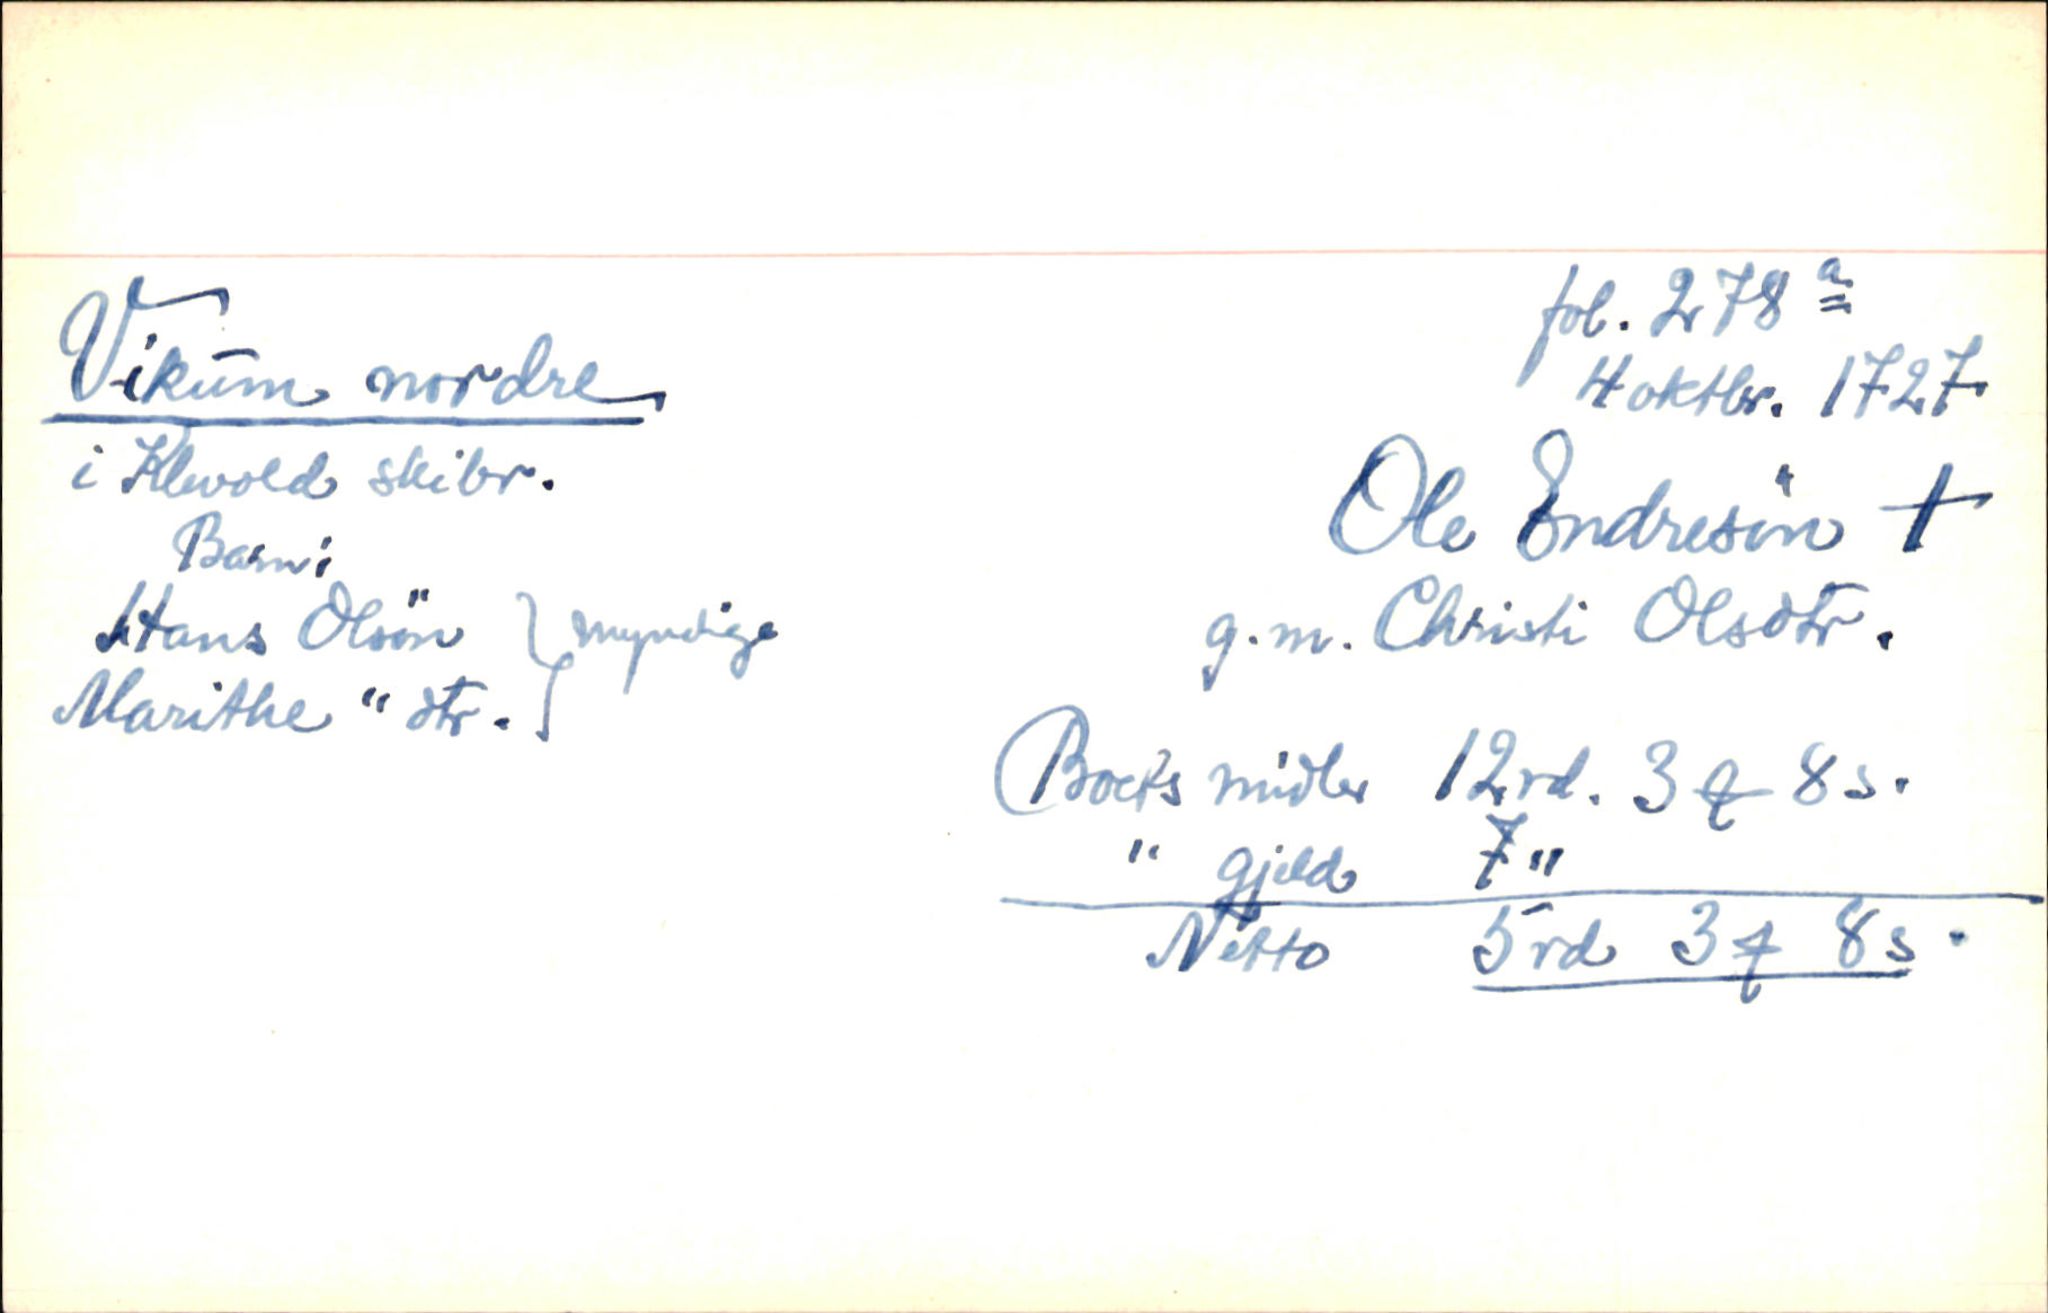 fol. 278 a
4 oktbr. 1727
Vikum nordre
i Klevold skibr.
Ole Endresön †
g. m. Christi Olsdtr.
Barn:
Hans Olsön } myndige
Marithe " dtr.
Boets midler 12 rd. 3 ƒ 8 s.
" gjeld 7 "
Netto 5 rd 3 ƒ 8 s.